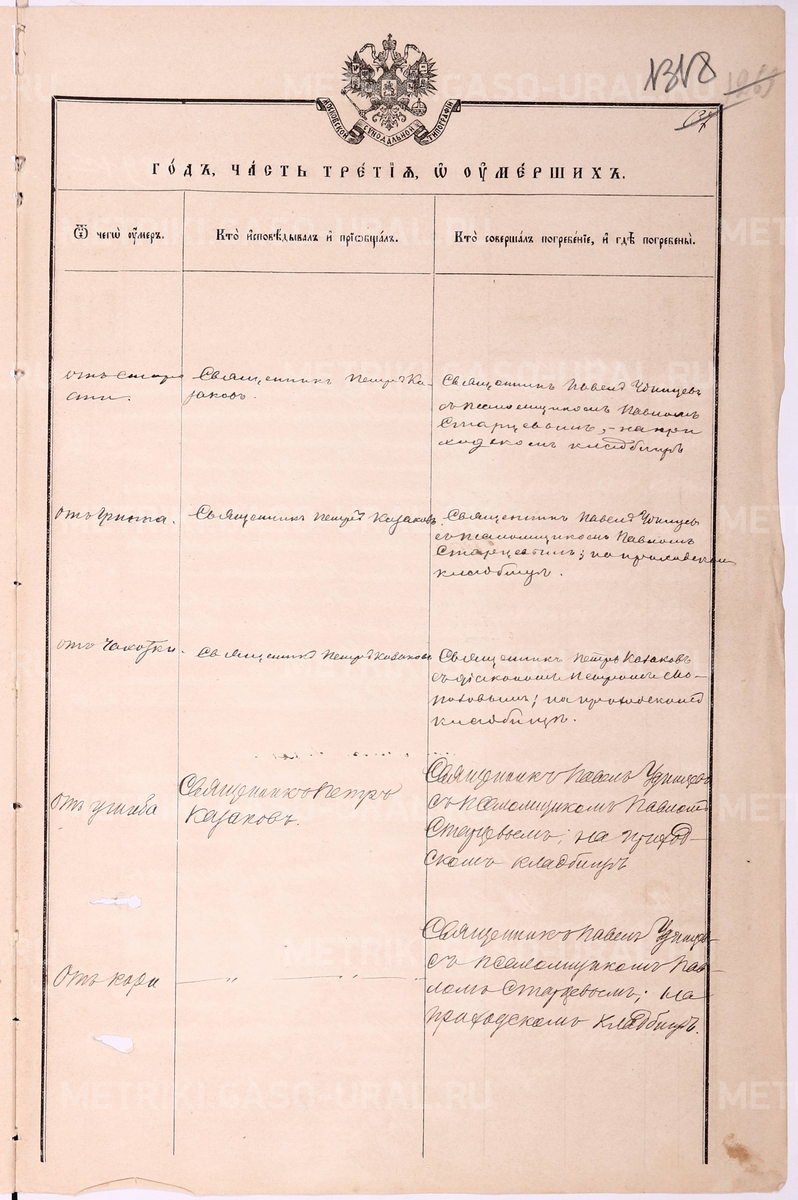 1318
МОСКОВСКОЙ СУНОДАЛЬНОЙ ТИПОГРАФІИ
ГО́ДЪ, ЧА́СТЬ ТРЕ́ТІѦ, Ѡ҆ ОУ҆МЕ́РШИХЪ.
Ѿ чегѡ̀ оу҆́меръ.
Кто̀ и҆сповѣ́дывалъ и҆ прїѡбща́лъ.
Кто̀ соверша́лъ погребе́нїе, и҆ гдѣ̀ погребены̀.
отъ старо
сти.
Священникъ Петръ Ка-
заковъ.
Священникъ Павелъ
съ псаломщикомъ Павломъ
Старцевымъ, - на при
ходскомъ кладбищѣ
отъ гриппа.
Священникъ Петръ Казаковъ
Священникъ Павелъ
съ псаломщикомъ Павломъ
Старцевымъ; на приходском
кладбищѣ.
отъ чахотки.
Священникъ Петръ Казаковъ
Священникъ Петръ Казаковъ
съ діакономъ
на приходскомъ
кладбищѣ.
Отъ ушиба
Священникъ Петръ
Казаковъ.
Священникъ Павелъ
съ псаломщикомъ Павломъ
Старцевымъ; на приход-
скомъ кладбищѣ
Отъ кори
— „ — „ —
Священникъ Павелъ
съ псаломщикомъ Пав-
ломъ Старцевымъ; на
приходскомъ кладбищѣ.
METRIKI.GASO-URAL.RU